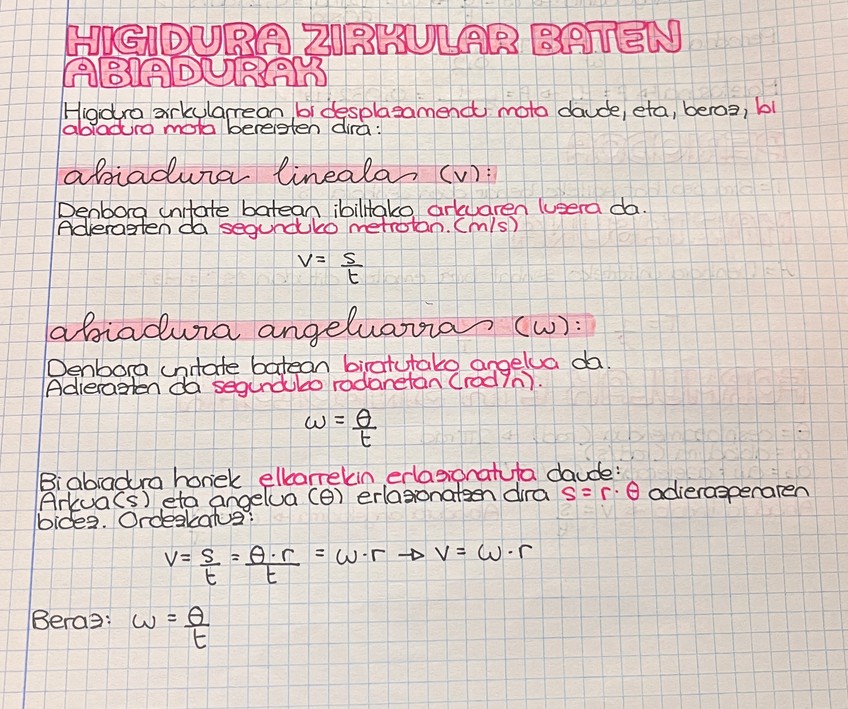 HIGIDURA ZIRKULAR BATEN
ABIADURAK
Higidura zirkularrean, bi desplazamendu mota daude, eta, beraz, bi
abiadura mota bereizten dira:
abiadura lineala (v):
Denbora unitate batean ibilitako arkuaren luzera da.
Adierazten da segunduko metrotan. (m/s)
v = s/t
abiadura angeluarra (ω):
Denbora unitate batean biratutako angelua da.
Adierazten da segunduko radanetan (rad/n).
ω = θ/t
Bi abiadura horiek elkarrekin erlazionatuta daude:
Arkua (s) eta angelua (θ) erlazionatzen dira s = r · θ adierazpenaren
bidez. Ordezkatuz:
v = s/t = θ·r/t = ω·r → v = ω·r
Beraz: ω = θ/t